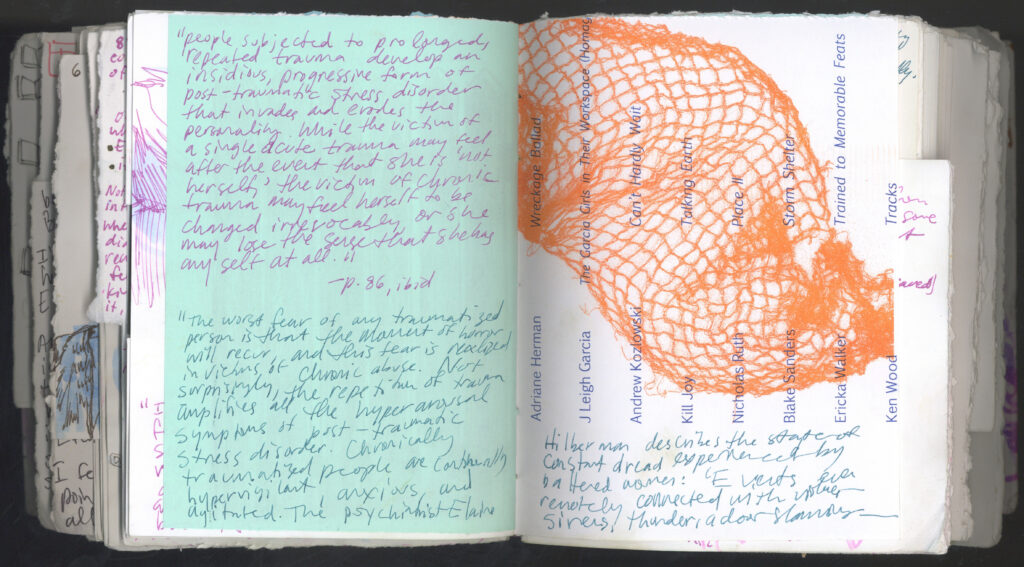 "people subjected to prolonged,
repeated trauma develop an
insidious, progressive form of
post-traumatic stress disorder
that invades and erodes the
personality. While the victim of
a single acute trauma may feel
after the event that she is 'not
herself,' the victim of chronic
trauma may feel herself to be
changed irrevocably, or she
may lose the sense that she has
any self at all."
-p.86, ibid
"The worst fear of any traumatized
person is that the moment of horror
will recur, and this fear is realized
in victims of chronic abuse. Not
surprisingly, the repetition of trauma
amplifies all the hyperarousal
symptoms of post-traumatic
stress disorder. Chronically
traumatized people are continually
hypervigilant, anxious and
agitated. The psychiatrist Elaine
Adriane Herman Wreckage Ballad
J Leigh Garcia The Garcia Girls in Their Workspace (Homag
Andrew Kozlowski Can't Hardly Wait
Kill Joy Talking Earth
Nicholas Ruth Place III
Blake Sanders Storm Shelter
Ericka Walker Trained to Memorable Feats
Ken Wood Tracks
Hilberman describes the state of
constant dread experienced by
battered women: 'Events even
remotely connected with
sirens, thunder, a door slamming—
6
I fe
poin
all